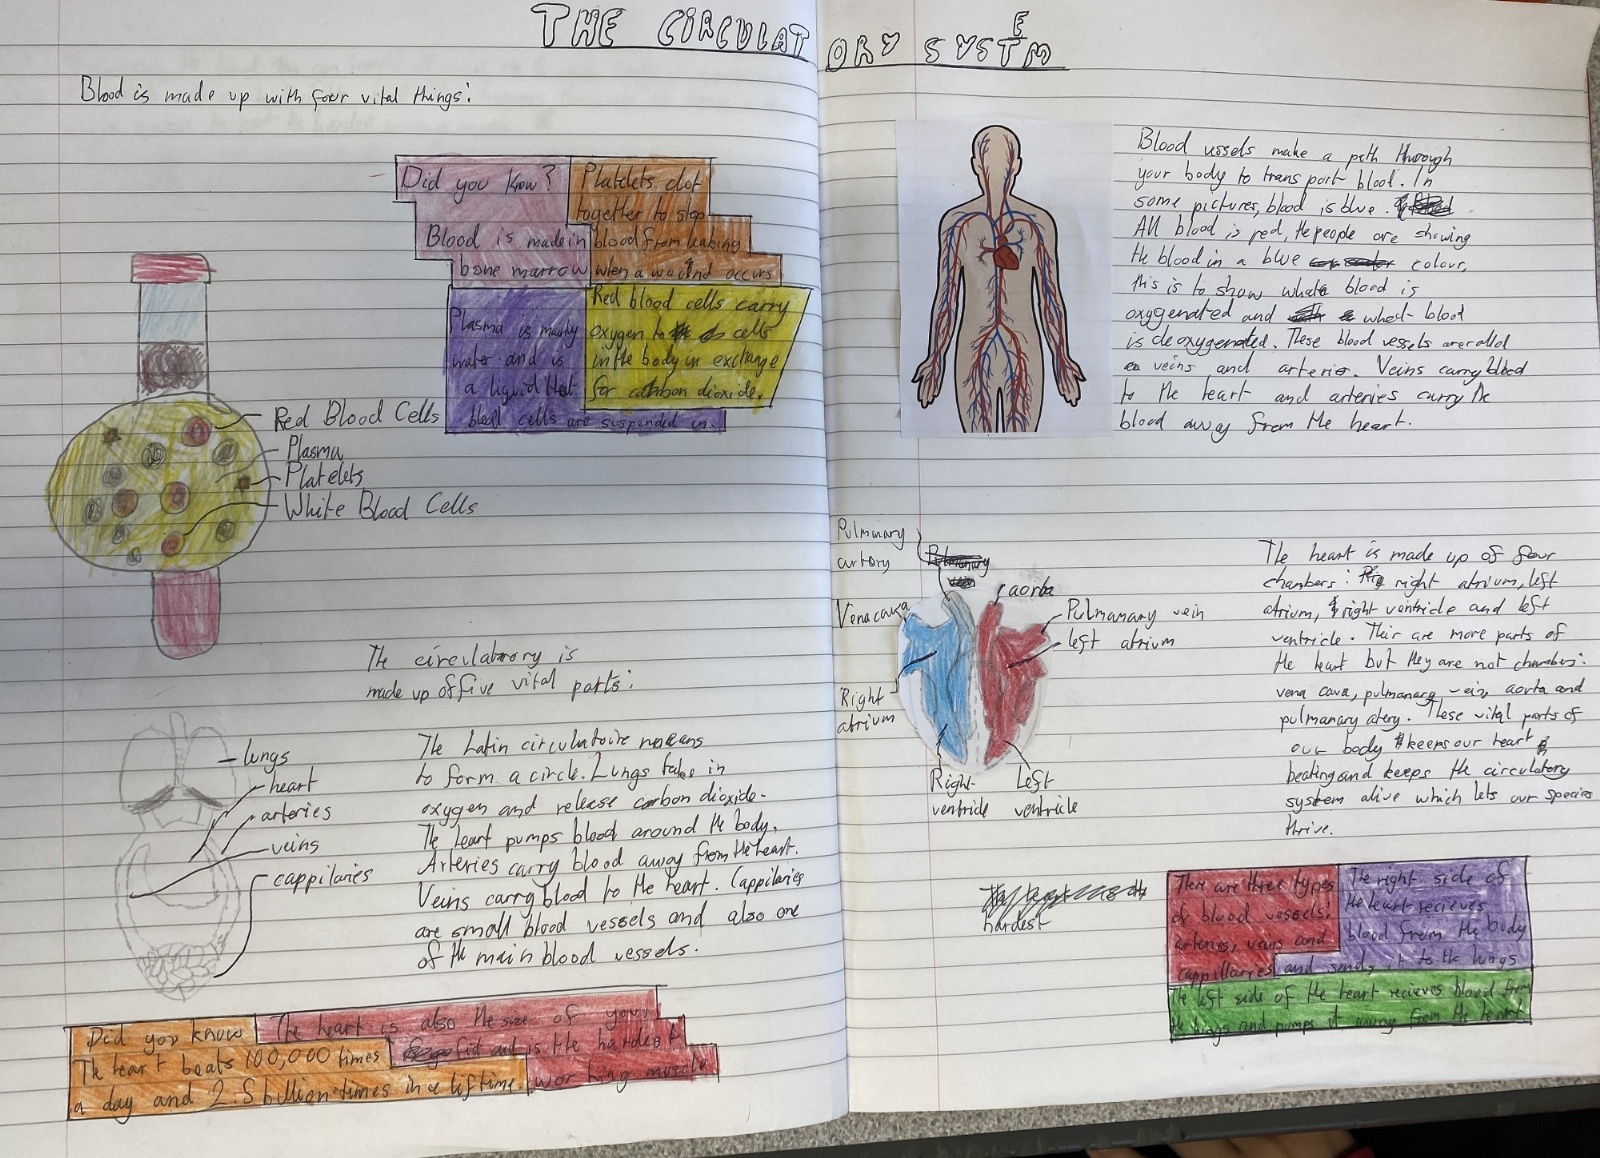 THE CIRCULATORY SYSTEM
Blood is made up with four vital things:
Did you know?
Blood is made in
bone marrow
Platelets clot
together to stop
blood from leaking
when a wound occurs
Plasma is mainly
water and is
a liquid that
blood cells are suspended in.
Red blood cells carry
oxygen to cells
in the body in exchange
for carbon dioxide.
Red Blood Cells
Plasma
Platelets
White Blood Cells
The circulatory is
made up of five vital parts:
lungs
heart
arteries
veins
cappilaries
The Latin circulatoire means
to form a circle. Lungs take in
oxygen and release carbon dioxide.
The heart pumps blood around the body.
Arteries carry blood away from the heart.
Veins carry blood to the heart. Cappilaries
are small blood vessels and also one
of the main blood vessels.
Did you know
The heart beats 100,000 times
a day and 2.5 billion times in a liftime.
The heart is also the size of your
fist and is the hardest
working muscle
Blood vessels make a path through
your body to transport blood. In
some pictures, blood is blue.
All blood is red, the people are showing
the blood in a blue colour,
this is to show what blood is
oxygenated and what blood
is deoxygenated. These blood vessels are called
veins and arteries. Veins carry blood
to the heart and arteries carry the
blood away from the heart.
Pulminary
artory
Pulmanary
vein
aorta
Vena cava
Pulmanary vein
left atrium
Right
atrium
Right
ventricle
Left
ventricle
The heart is made up of four
chambers: right atrium, left
atrium, right ventricle and left
ventricle. Their are more parts of
the heart but they are not chambers:
vena cava, pulmanary vein, aorta and
pulmanary atery. These vital parts of
our body keeps our heart
beating and keeps the circulatory
system alive which lets our species
thrive.
hardest
There are three types
of blood vessels:
arteries, veins and
cappillarries
The right side of
the heart recieves
blood from the body
and sends it to the lungs
The left side of the heart recieves blood from
the lungs and pumps it away from the heart